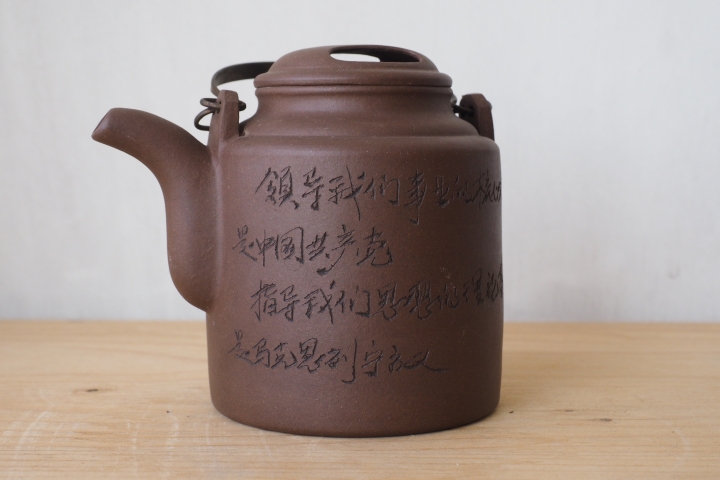 領导我们事业的核心
是中国共产党
指导我们思想的理论
是马克思列宁主义